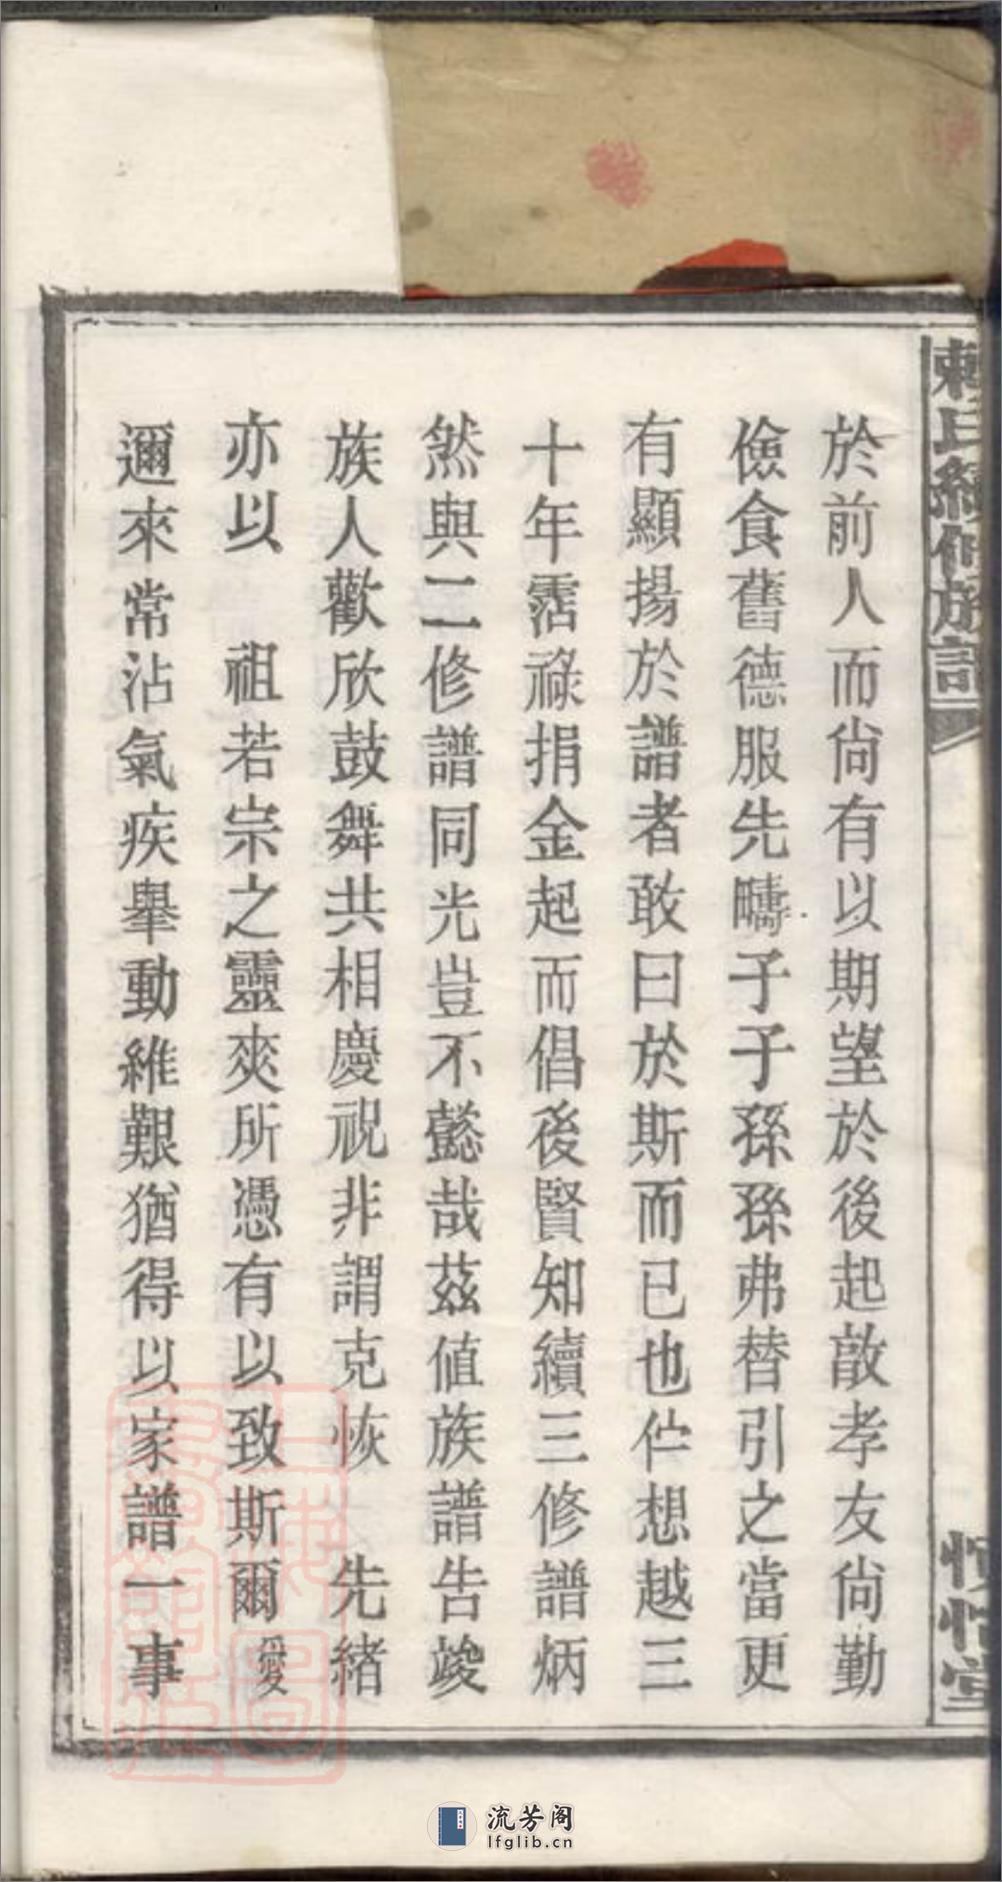 於前人而尚有以期望於後起敢孝友尚勤
儉食舊德服先疇子子孫孫弗替引之當更
有顯揚於譜者敢曰於斯而已也伫想越三
十年霑祿捐金起而倡後賢知續三修譜炳
然與二修譜同光豈不懿哉茲值族譜告竣
族人歡欣鼓舞共相慶祝非謂克恢　先緒
亦以　祖若宗之靈爽所憑有以致斯爾愛
邇來常沾氣疾舉動維艱猶得以家譜一事
流芳阁
lfglib.cn